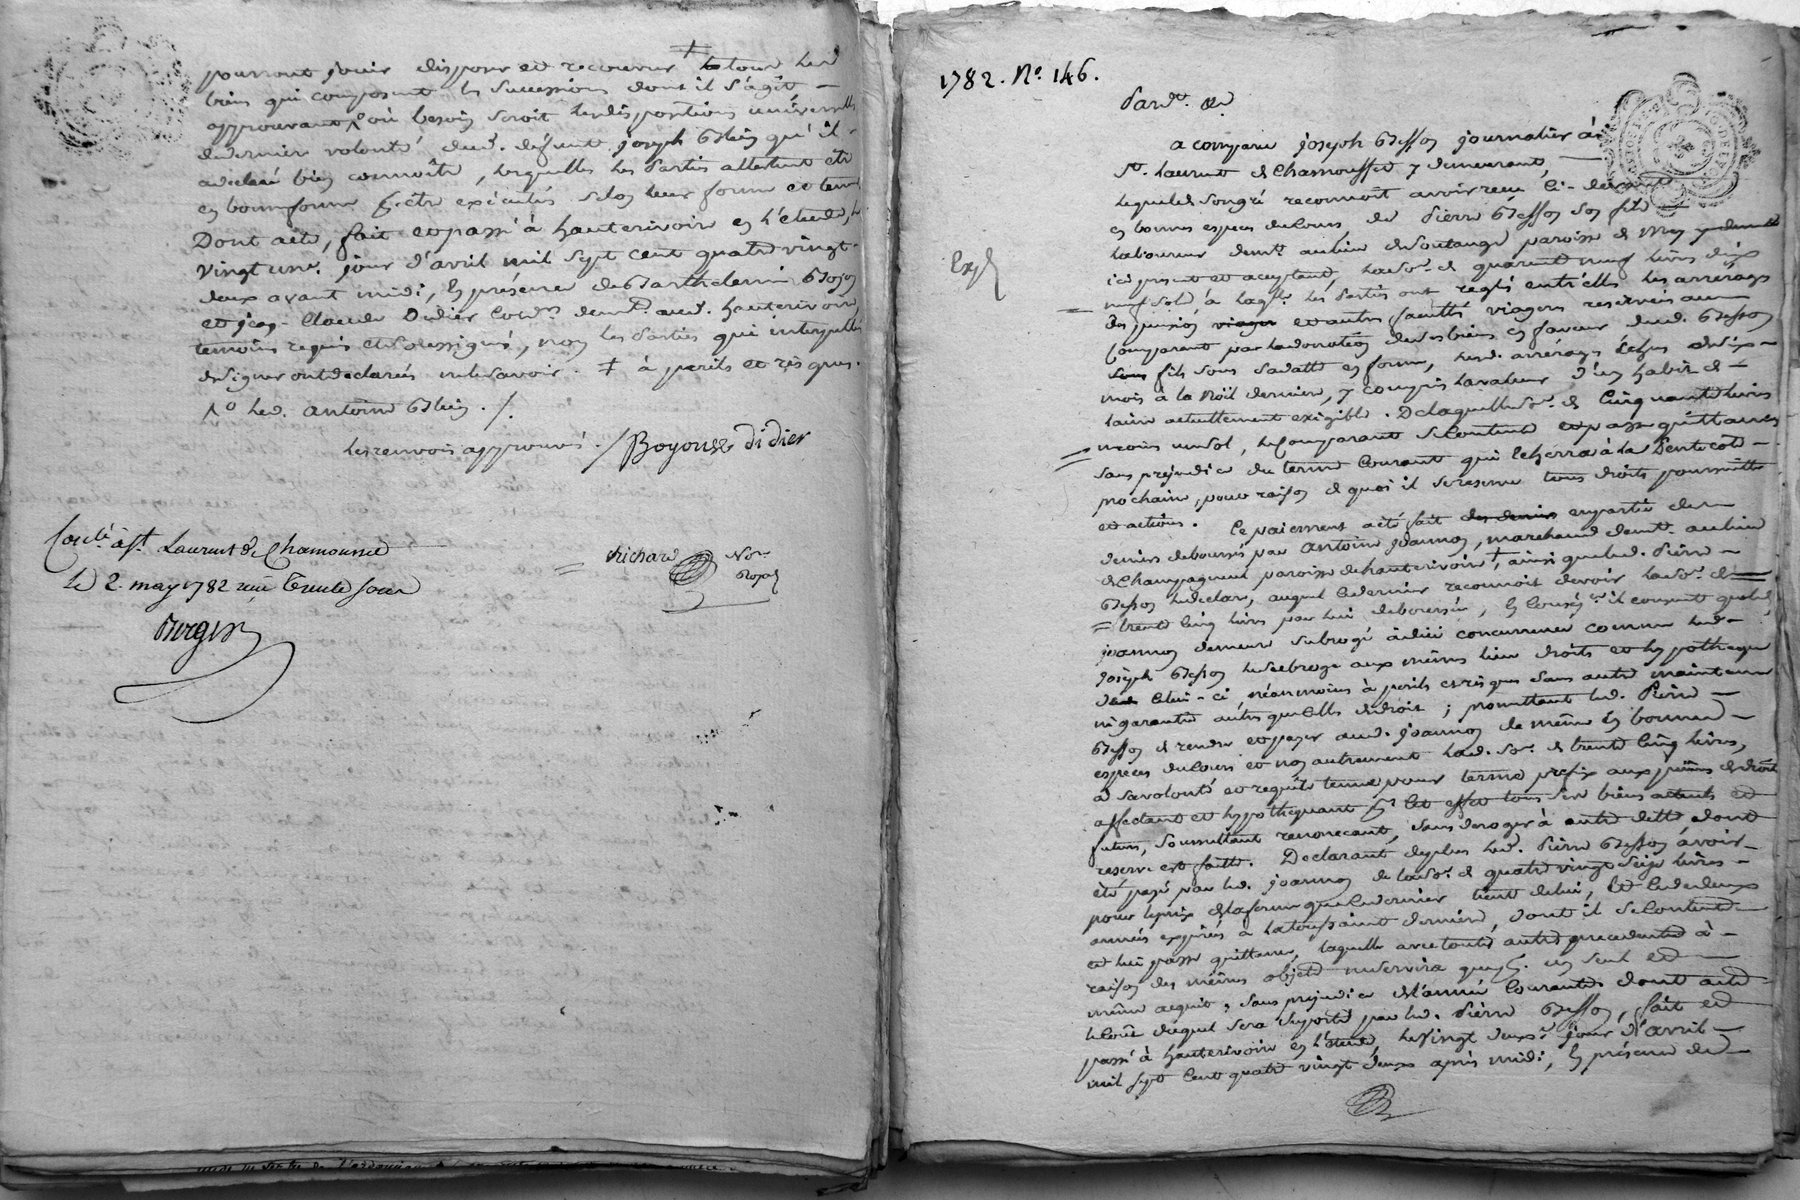 pourront jouir disposer et recouvrer ‡ tous les
biens qui composent les successions dont il s'agit —
approuvant où besoin seroit les dispositions universelles
de dernier volonté dud. défunt joseph Blein qu'il
a déclaré bien connoître, lesquelles les parties attestent etre
en bonne forme pr. etre exécutés selon leur forme et teneur
Dont acte, fait et passé à hauterivoire en l'étude, le
vingt une. jour d'avril mil sept cent quatre vingt
deux avant midi, en présence de Barthelemi
et jean-Claude Didier demt. aud. hauterivoire,
temoins requis et soussignés, non les parties qui interpellés
de signer ont declarés ne le savoir. ‡ à perils et risques.
led. antoine Blein ./.
les renvois approuvés. / Boyousse didier
Conlé. à st. Laurent de Chamousset
le 2. may 1782 reçu trente sous
Richard Nore. Royal
1782. No. 146.
Pardt. &
a comparu joseph Besson journalier à
St. Laurent de Chamousset y demeurant, —
lequel de son gré reconnoît avoir reçu ci-devant
en bonnes especes de cours, de Pierre Besson son fils
laboureur demt. au lieu de Soulange paroisse de
Exp
ici present et aceptant, la so. de quarente neuf livres dix
neuf sols, à laqle. les parties ont reglé entr'elles les arrérages
des pension viager et autres facultés viageres reservées au
comparant par la donation de ses biens en faveur dud. Besson
sons fils sous sa datte en forme, lesd. arrérages échus
mois à la Noël derniere, y compris la valeur d'un habit de —
laine actuellement exigible. De laquelle so. de cinquante livres
moins un sol, le comparant se contente et passe quittance
sans prejudice du terme courant qui écherra à la Pentecote —
prochaine, pour raison de quoi il se reserve tous droits poursuittes
et actions. Ce paiement a été fait des deniers en partie de
deniers deboursés par antoine joannon, marchand demt. au lieu
de Champagneux paroisse de hauterivoire ‡, ainsi que led. Pierre —
Besson le declare, auquel ce dernier reconnoit devoir la so. de
trente cinq livres par lui deboursée, en conséqce. il consent que led.
joannon demeure subrogé à due concurrence comme led.
joseph Besson le subroge aux mêmes lieu droits et hypotheque
de celui-ci, néanmoins à perils et risques sans autre maintenue
ni garantie autre que celle de droit; promettant led. Pierre —
Besson de rendre et payer aud. joannon de même en bonnes —
especes de cours et non autrement lad. so. de trente cinq livres,
à sa volonté et requête tenue pour terme prefix aux peines de droit
affectant et hypothequant pr. cet effet tous ses biens actuels et
futurs, soumettant renonçant, sans deroger à autre dette dont
reserve est faitte. Declarant deplus led. Pierre Besson avoir —
été payé par led. joannon de la so. de quatre vingt seize livres —
pour le prix de la ferme que ce dernier tient de lui, et ce de deux
années expirées à la toussaint derniere, dont il se contente
et lui passe quittance, laquelle avec toutes autres precedentes à —
raison des mêmes objets ne servira que pr. un seul et
même acquit, sans prejudice de l'année courante dont acte
le coût duquel sera suporté par led. Pierre Besson, fait et
passé à hauterivoire en l'étude, le vingt deuxe. jour d'avril —
mil sept cent quatre vingt deux après midi, en présence de